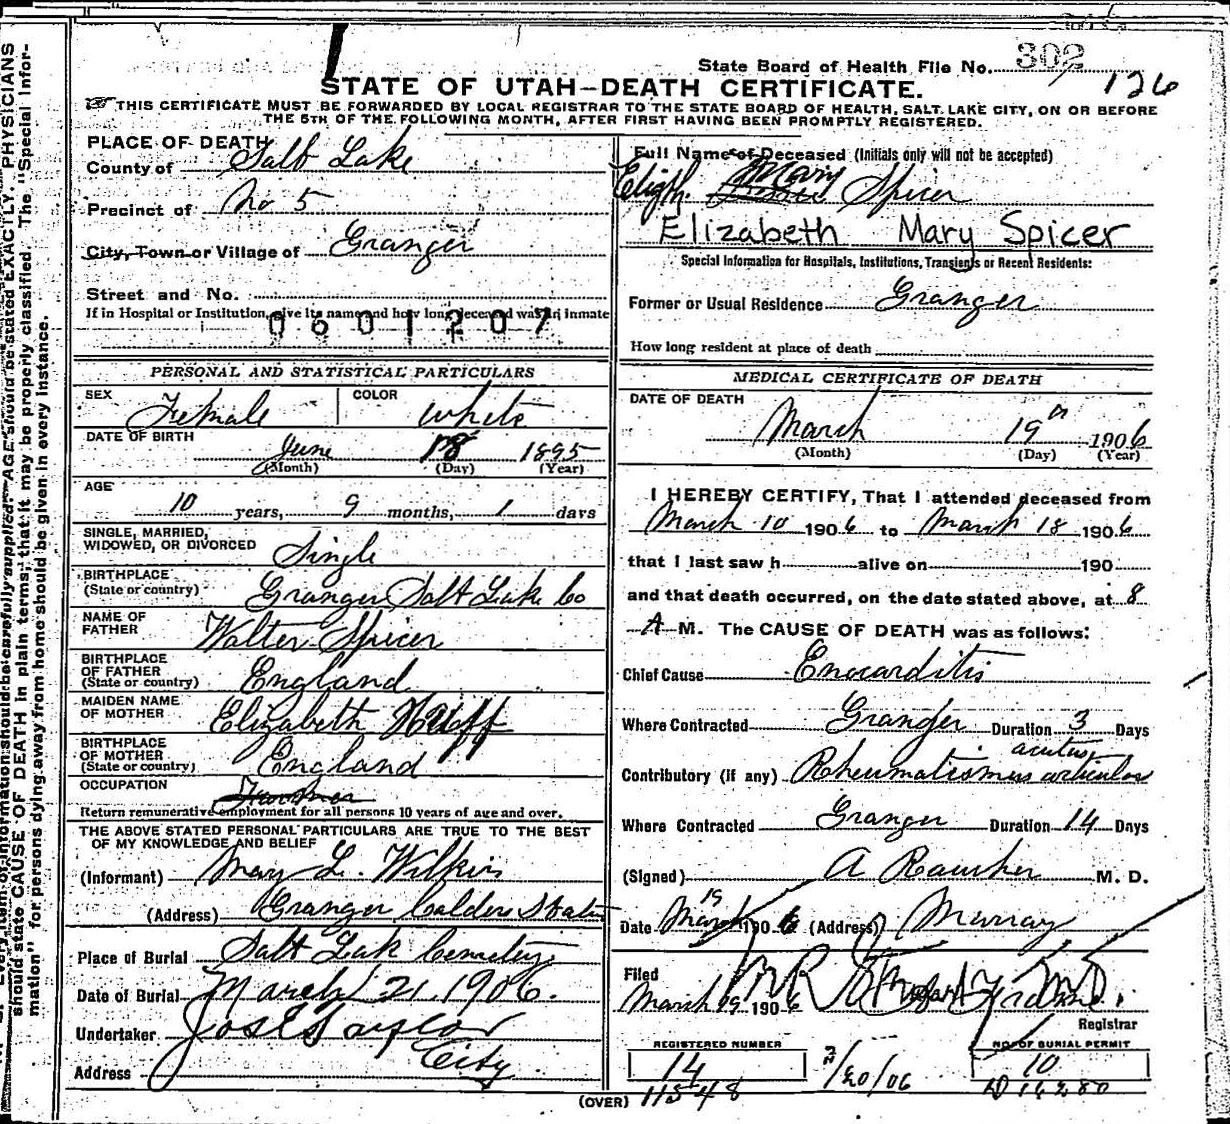 302
State Board of Health File No.
126
STATE OF UTAH—DEATH CERTIFICATE.
THIS CERTIFICATE MUST BE FORWARDED BY LOCAL REGISTRAR TO THE STATE BOARD OF HEALTH, SALT LAKE CITY, ON OR BEFORE
THE 5TH OF THE FOLLOWING MONTH, AFTER FIRST HAVING BEEN PROMPTLY REGISTERED.
PLACE OF DEATH
County of Salt Lake
Precinct of No 5
City, Town or Village of Granger
Street and No.
If in Hospital or Institution, give its name and how long deceased was an inmate
0601207
PERSONAL AND STATISTICAL PARTICULARS
SEX Female COLOR White
DATE OF BIRTH June 18 1895
(Month) (Day) (Year)
AGE
10 years, 9 months, 1 days
SINGLE, MARRIED,
WIDOWED, OR DIVORCED Single
BIRTHPLACE
(State or country) Granger Salt Lake Co
NAME OF
FATHER Walter Spicer
BIRTHPLACE
OF FATHER
(State or country) England
MAIDEN NAME
OF MOTHER Elizabeth Huff
BIRTHPLACE
OF MOTHER
(State or country) England
OCCUPATION
Return remunerative employment for all persons 10 years of age and over.
THE ABOVE STATED PERSONAL PARTICULARS ARE TRUE TO THE BEST
OF MY KNOWLEDGE AND BELIEF
(Informant) Mary L. Wilkin
(Address) Granger Calders Station
Place of Burial Salt Lak Cemetery
Date of Burial March 21, 1906.
Undertaker Jos E Taylor
Address City
Full Name of Deceased (Initials only will not be accepted)
Elizth. Mary Spicer
Elizabeth Mary Spicer
Special Information for Hospitals, Institutions, Transients or Recent Residents:
Former or Usual Residence Granger
How long resident at place of death
MEDICAL CERTIFICATE OF DEATH
DATE OF DEATH
March 19 1906
(Month) (Day) (Year)
I HEREBY CERTIFY, That I attended deceased from
March 10 1906 to March 18 1906
that I last saw h alive on 190
and that death occurred, on the date stated above, at 8
A M. The CAUSE OF DEATH was as follows:
Chief Cause Enocarditis
Where Contracted Granger Duration 3 Days
acutus
Contributory (if any) Rheumatismus articulos
Where Contracted Granger Duration 14 Days
(Signed) A Rawcher M. D.
Date March 19 1906 (Address) Murray
Filed
March 19 1906
Registrar
REGISTERED NUMBER
14
3/20/06
NO. OF BURIAL PERMIT
10
(OVER) 11548
should state CAUSE OF DEATH in plain terms, that it may be properly classified. The "Special Infor-
mation" for persons dying away from home should be given in every instance.